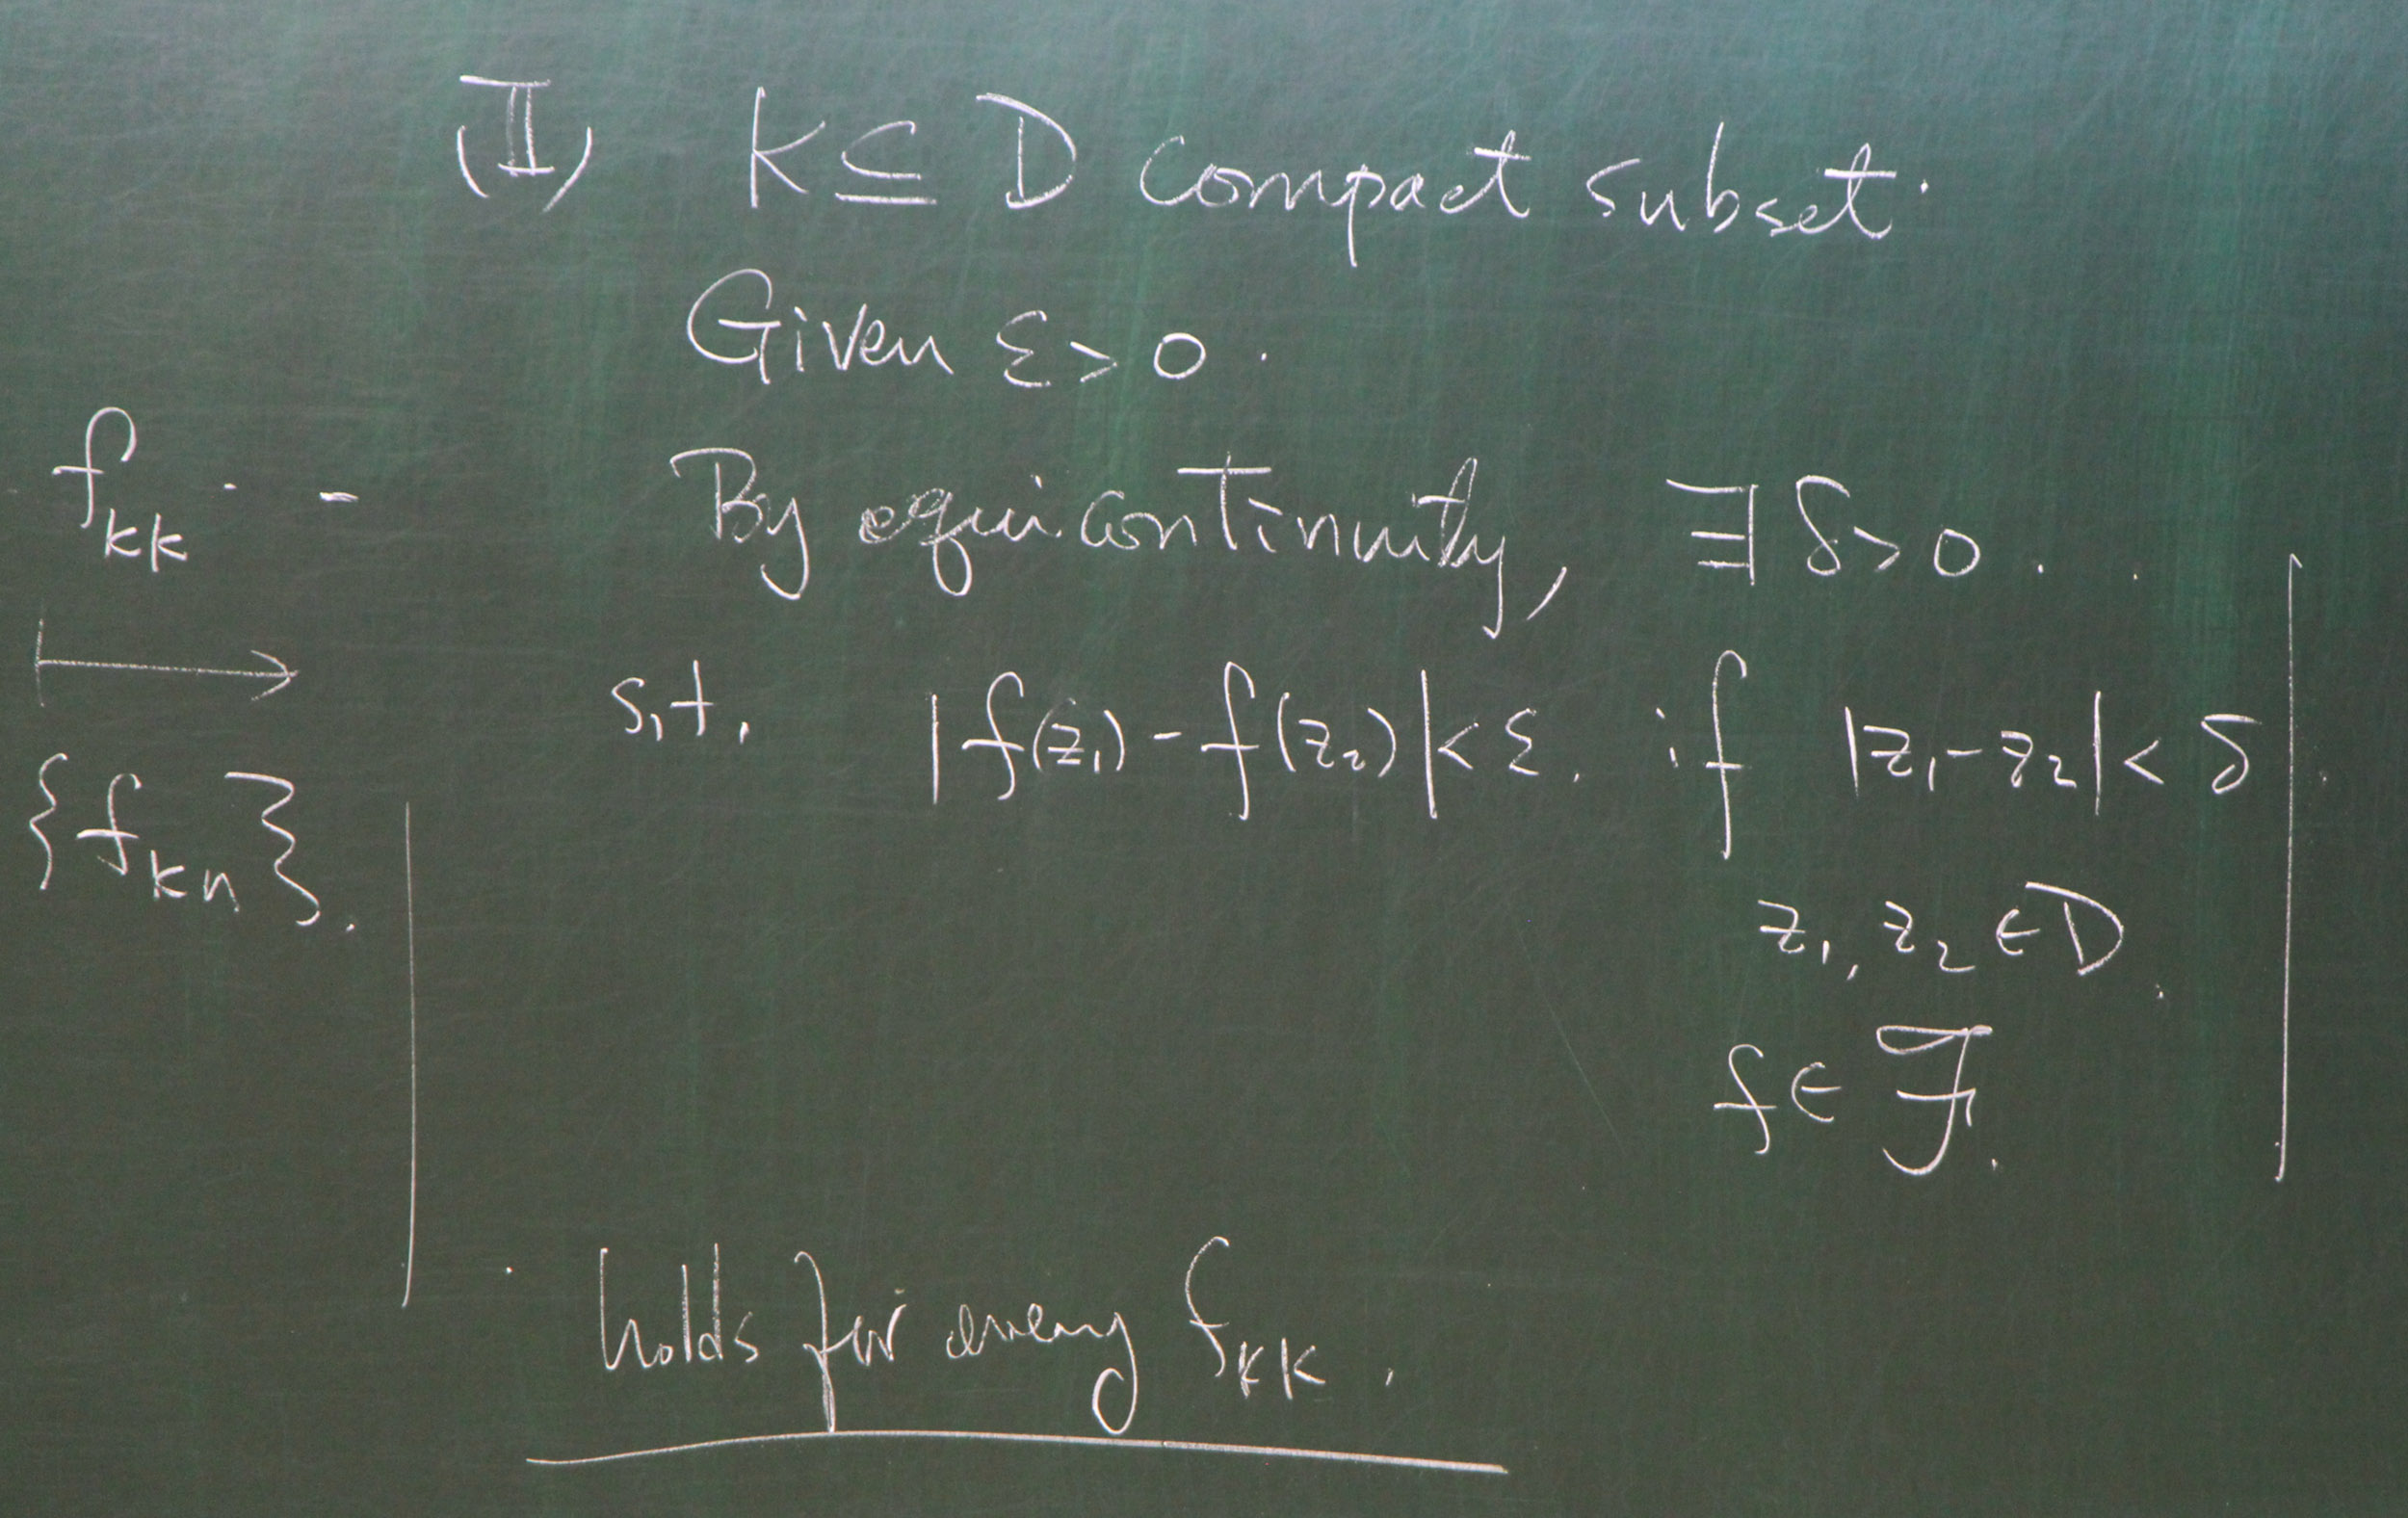 (II) K ⊆ D compact subset.
Given ε > 0.
f_{kk} . -
By equicontinuity, ∃ δ > 0 . .
s.t. |f(z_1) - f(z_2)| < ε. if |z_1 - z_2| < δ.
{f_{kn}}.
z_1, z_2 ∈ D.
f ∈ ℱ.
holds for every f_{kk}.